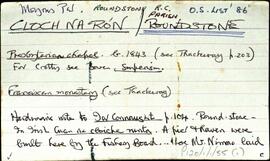 Moyrus Pd. ROUNDSTONE R.C. PARISH O.S. LIST '86
CLOCH NA RÓN ROUNDSTONE
Presbyterian chapel G. 1843 (see Thackeray p.203)
For Crotty see Birr
Franciscan monastery (see Thackeray)
Hardiman's note to Iar Connaught p.104. Roundstone -
In Irish Cuan na cloiche rónta. A pier & haven were
built here by the Fishery Board... Mr. Nimmo laid
P120/1/55 (1)